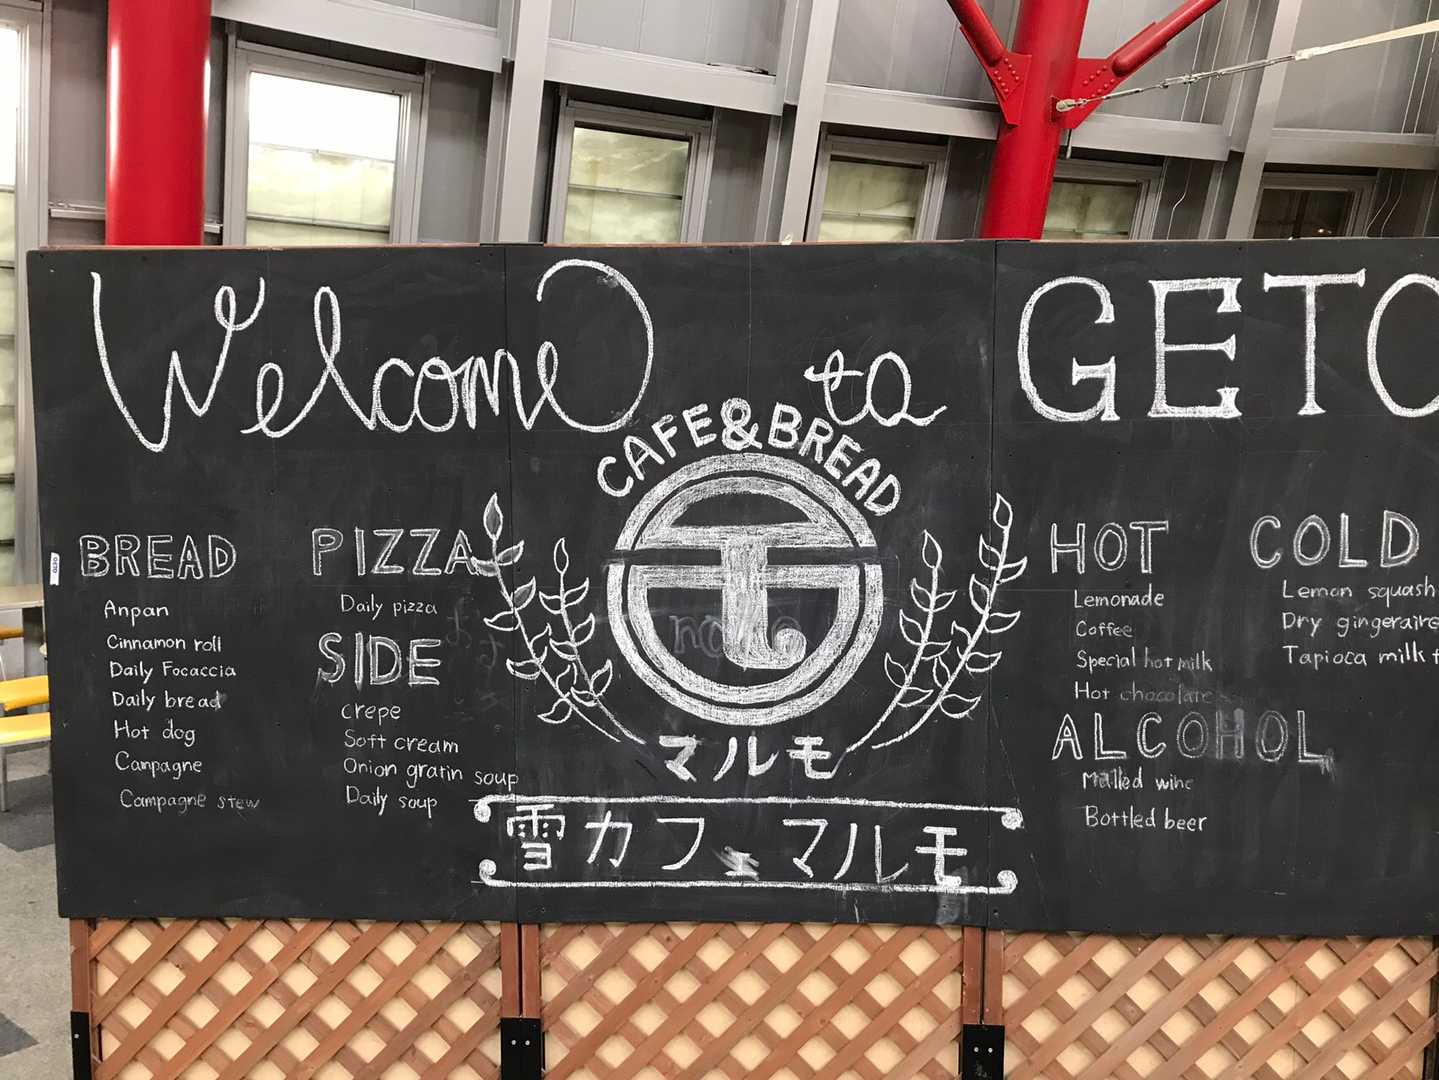 Welcome to GETO
CAFE&BREAD
モ
マルモ
雪カフェマルモ
BREAD
Anpan
Cinnamon roll
Daily Focaccia
Daily bread
Hot dog
Campagne
Campagne stew
PIZZA
Daily pizza
SIDE
crepe
Soft cream
Onion gratin soup
Daily soup
HOT
Lemonade
Coffee
Special hot milk
Hot chocolate
ALCOHOL
Malled wine
Bottled beer
COLD
Lemon squash
Dry gingeraire
Tapioca milk t